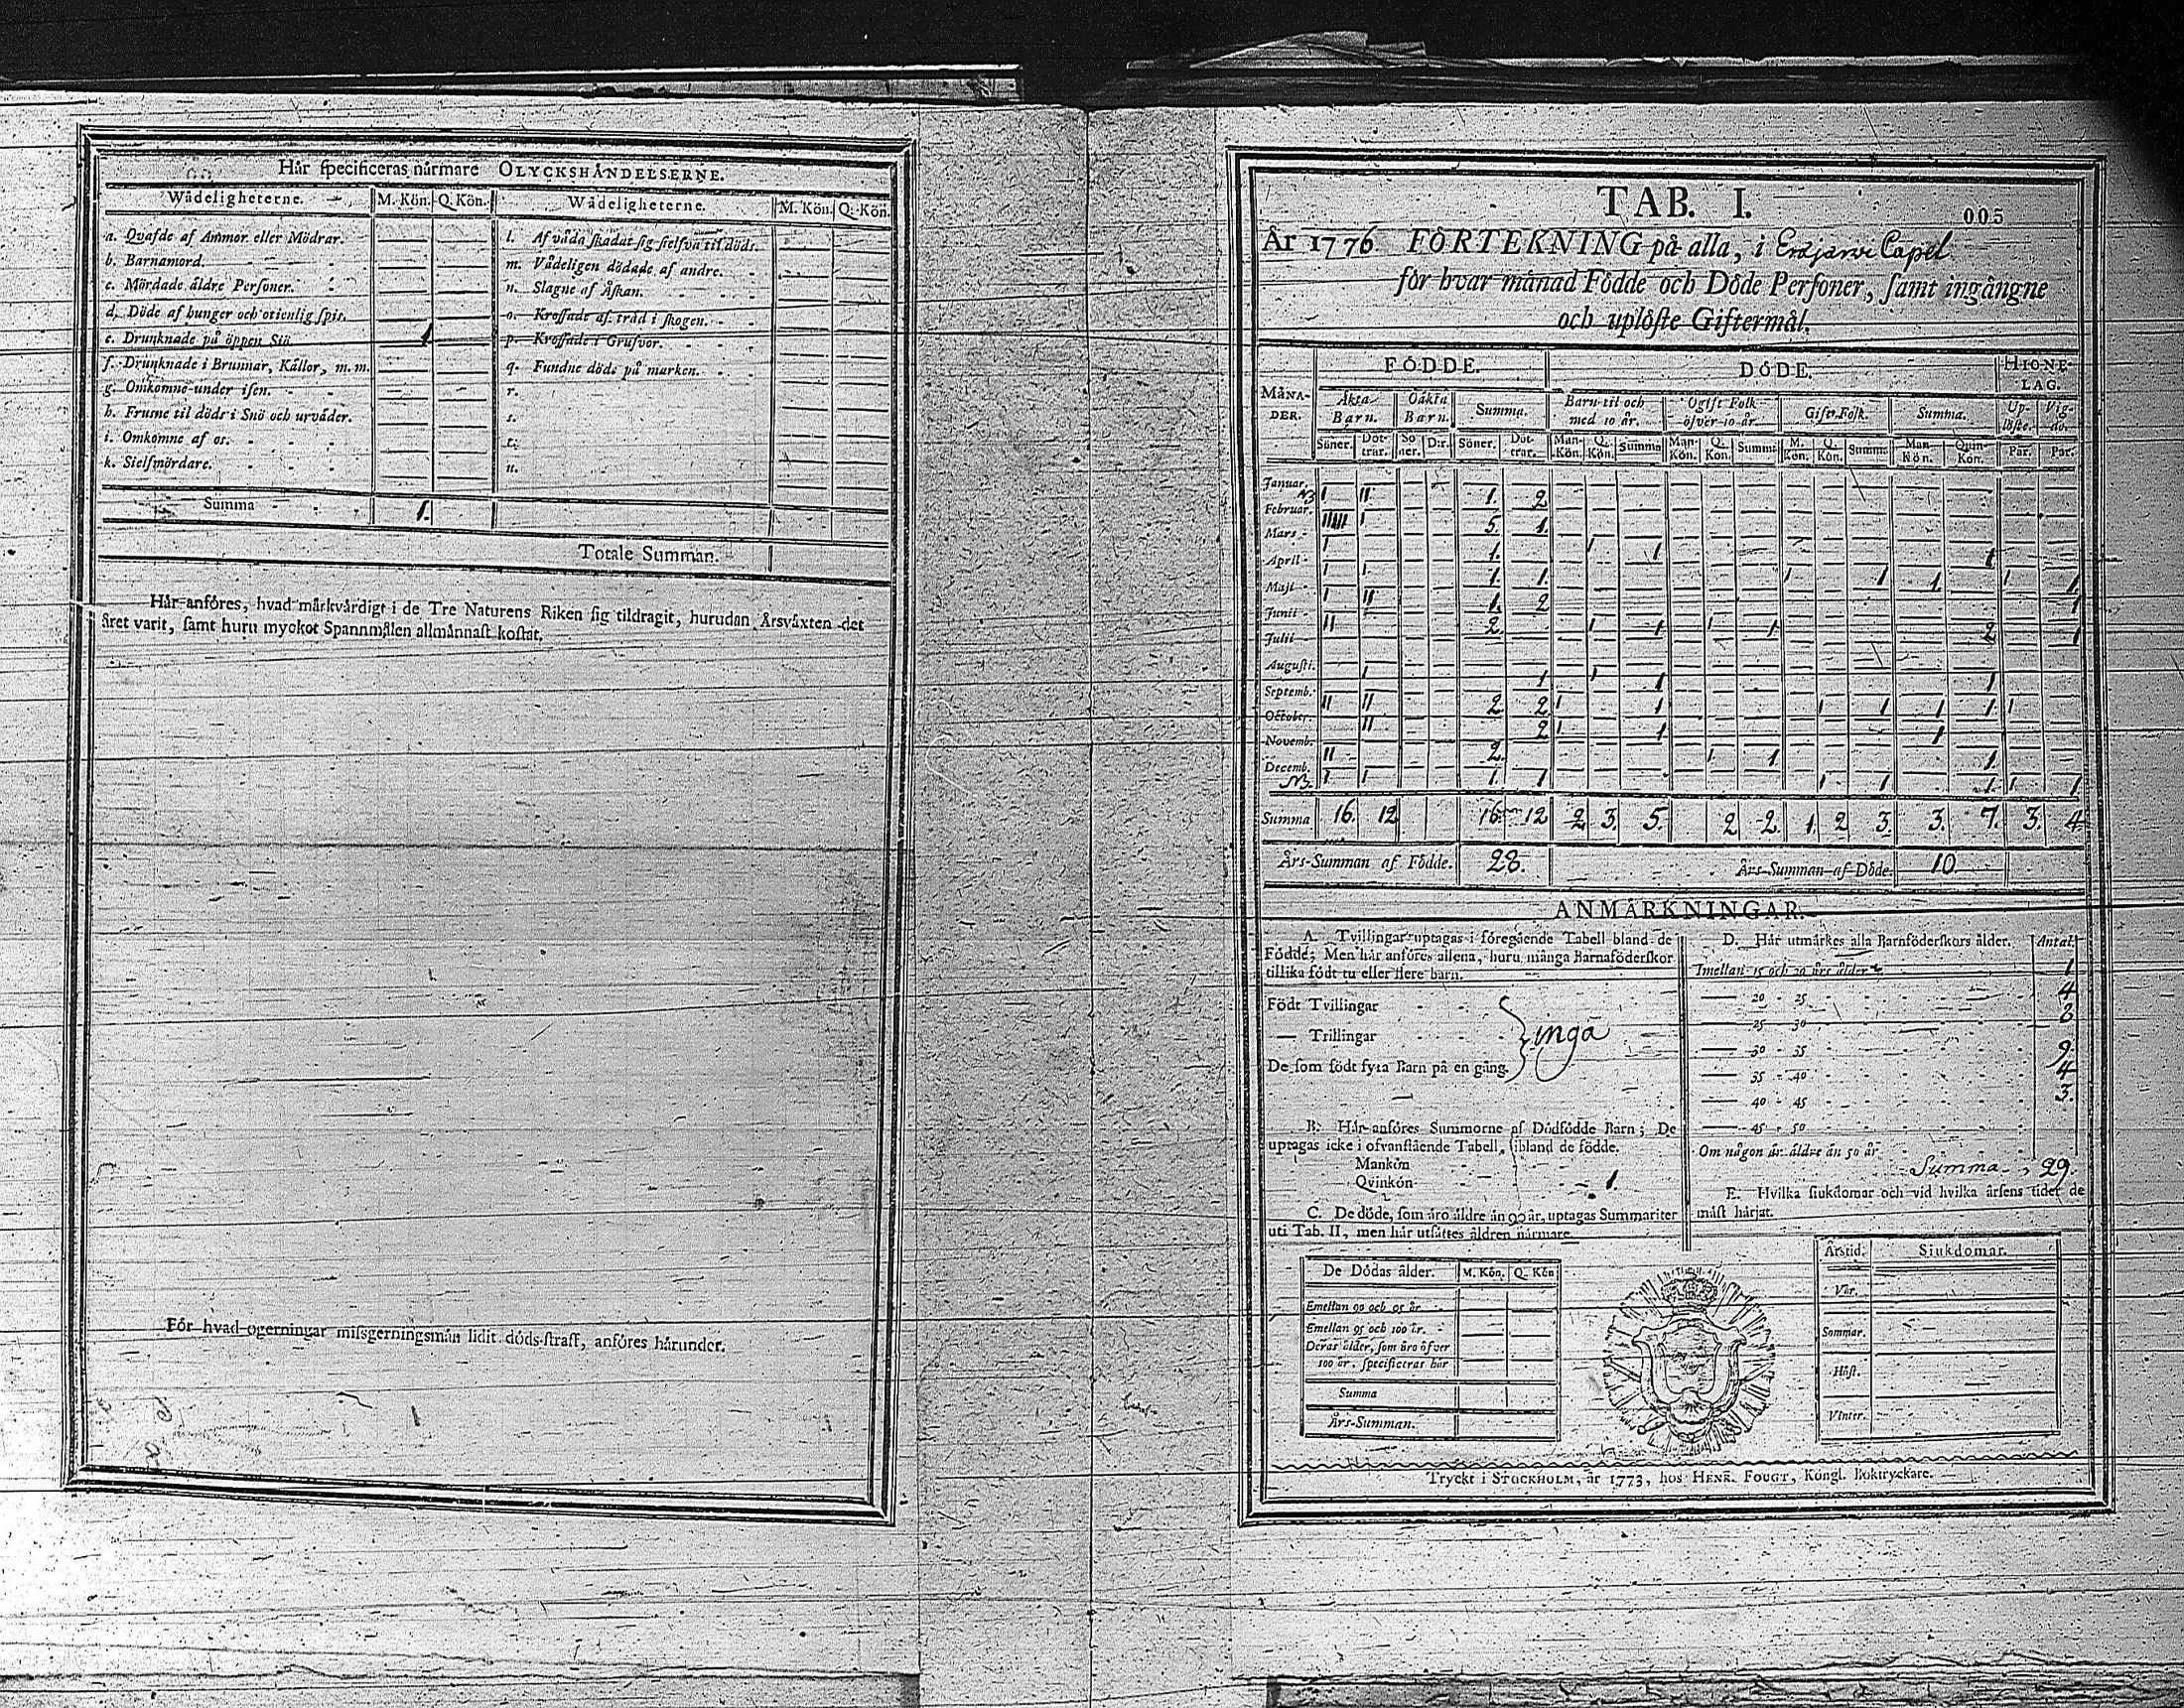 Här specificeras närmare OLYCKSHÄNDELSERNE.
Wådeligheterne. M. Kön. Q. Kön. Wådeligheterne. M. Kön. Q. Kön.
a. Qvafde af Ammor eller Mödrar.
b. Barnamord.
c. Mördade äldre Personer.
d. Döde af hunger och otienlig spis.
e. Drunknade på öppen Siö. 1
f. Drunknade i Brunnar, Källor, m. m.
g. Omkomne under isen.
h. Frusne til döds i Snö och urväder.
i. Omkomne af os.
k. Sielfmördare.
Summa 1.
l. Af våda skadat sig sielfva til döds.
m. Vådeligen dödade af andre.
n. Slagne af Åskan.
o. Krossade af träd i skogen.
p. Krossade i Grufvor.
q. Fundne döde på marken.
r.
s.
t.
u.
Totale Summan.
Här anföres, hvad märkvärdigt i de Tre Naturens Riken sig tildragit, hurudan Årsväxten det
året varit, samt huru myckot Spannmålen allmännast kostat.
För hvad ogerningar missgerningsmän lidit döds-straff, anföres härunder.
TAB. I.
005
År 1776. FÖRTEKNING på alla, i Eräjärvi Capel
för hvar månad Födde och Döde Personer, samt ingångne
och uplöste Giftermål.
MÅNA-DER. FÖDDE. DÖDE. HIONE-LAG.
Äkta Barn. Oäkta Barn. Summa. Barn til och med 10 år. Ogift Folk öfver 10 år. Gift Folk. Summa. Up-löste. Vig-de.
Söner. Döt-trar. So ner. D:r. Söner. Döt-trar. Man-Kön. Q. Kön. Summa Man-Kön. Q. Kön. Summa M. Kön. Q. Kön. Summa Man-Kön. Quin-Kön. Par. Par.
Januar. NB I II 1. 2
Februar. IIIII I 5. 1.
Mars I 1. 1 1 1
April I I 1. 1. 1 1 1. 1 1
Maji I II 1. 2 1
Junii II 2. 1 1 1 1 2 1
Julii
Augusti. I 1 1 1 1
Septemb. II II 2 2 1 1 1 1 1 1 1
October II 2 1 1 1
Novemb. II 2. 1 1 1.
Decemb. NB. I I 1. 1 1 1 1. 1 1
Summa 16. 12 16. 12 2 3. 5. 2 2. 1. 2 3. 3. 7. 3. 4
Års-Summan af Födde. 28. Års-Summan af Döde. 10
ANMÄRKNINGAR.
A. Tvillingar uptagas i föregående Tabell bland de
Födde; Men här anföres allena, huru många Barnaföderskor
tillika födt tu eller flere barn.
Födt Tvillingar
— Trillingar inga
De som födt fyra Barn på en gång.
B. Här anföres Summorne af Dödfödde Barn; De
uptagas icke i ofvanstående Tabell, ibland de födde.
Mankön
Qvinkön 1.
C. De döde, som äro äldre än 90 år, uptagas Summariter
uti Tab. II, men här utsättes åldren närmare.
De Dödas ålder. M. Kön. Q. Kön
Emellan 90 och 95 år
Emellan 95 och 100 år.
Deras ålder, som äro öfver
100 år, specificeras här
Summa
Års-Summan.
D. Här utmärkes alla Barnföderskors ålder. Antal.
Imellan 15 och 20 års ålder 1
20 - 25 4
25 - 30 8
30 - 35 9
35 - 40 4
40 - 45 3.
45 - 50
Om någon är äldre än 50 år
Summa 29.
E. Hvilka siukdomar och vid hvilka årsens tider de
mäst härjat.
Årstid. Siukdomar.
Vår.
Sommar.
Höst.
Vinter.
Tryckt i STOCKHOLM, år 1773, hos HENR. FOUGT, Kongl. Boktryckare.